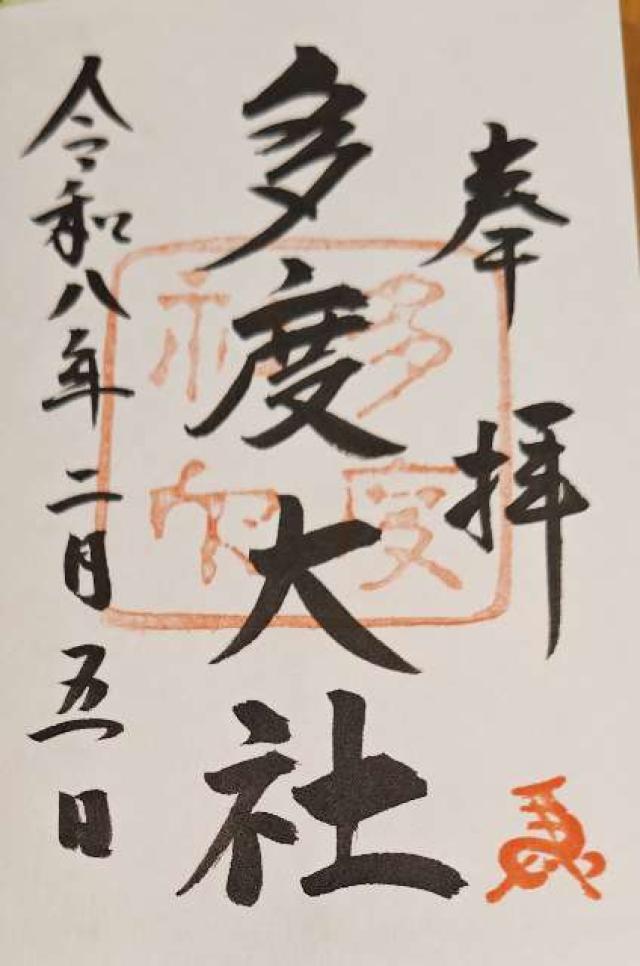 奉拝
多度大社
多度
社印
令和八年二月五日